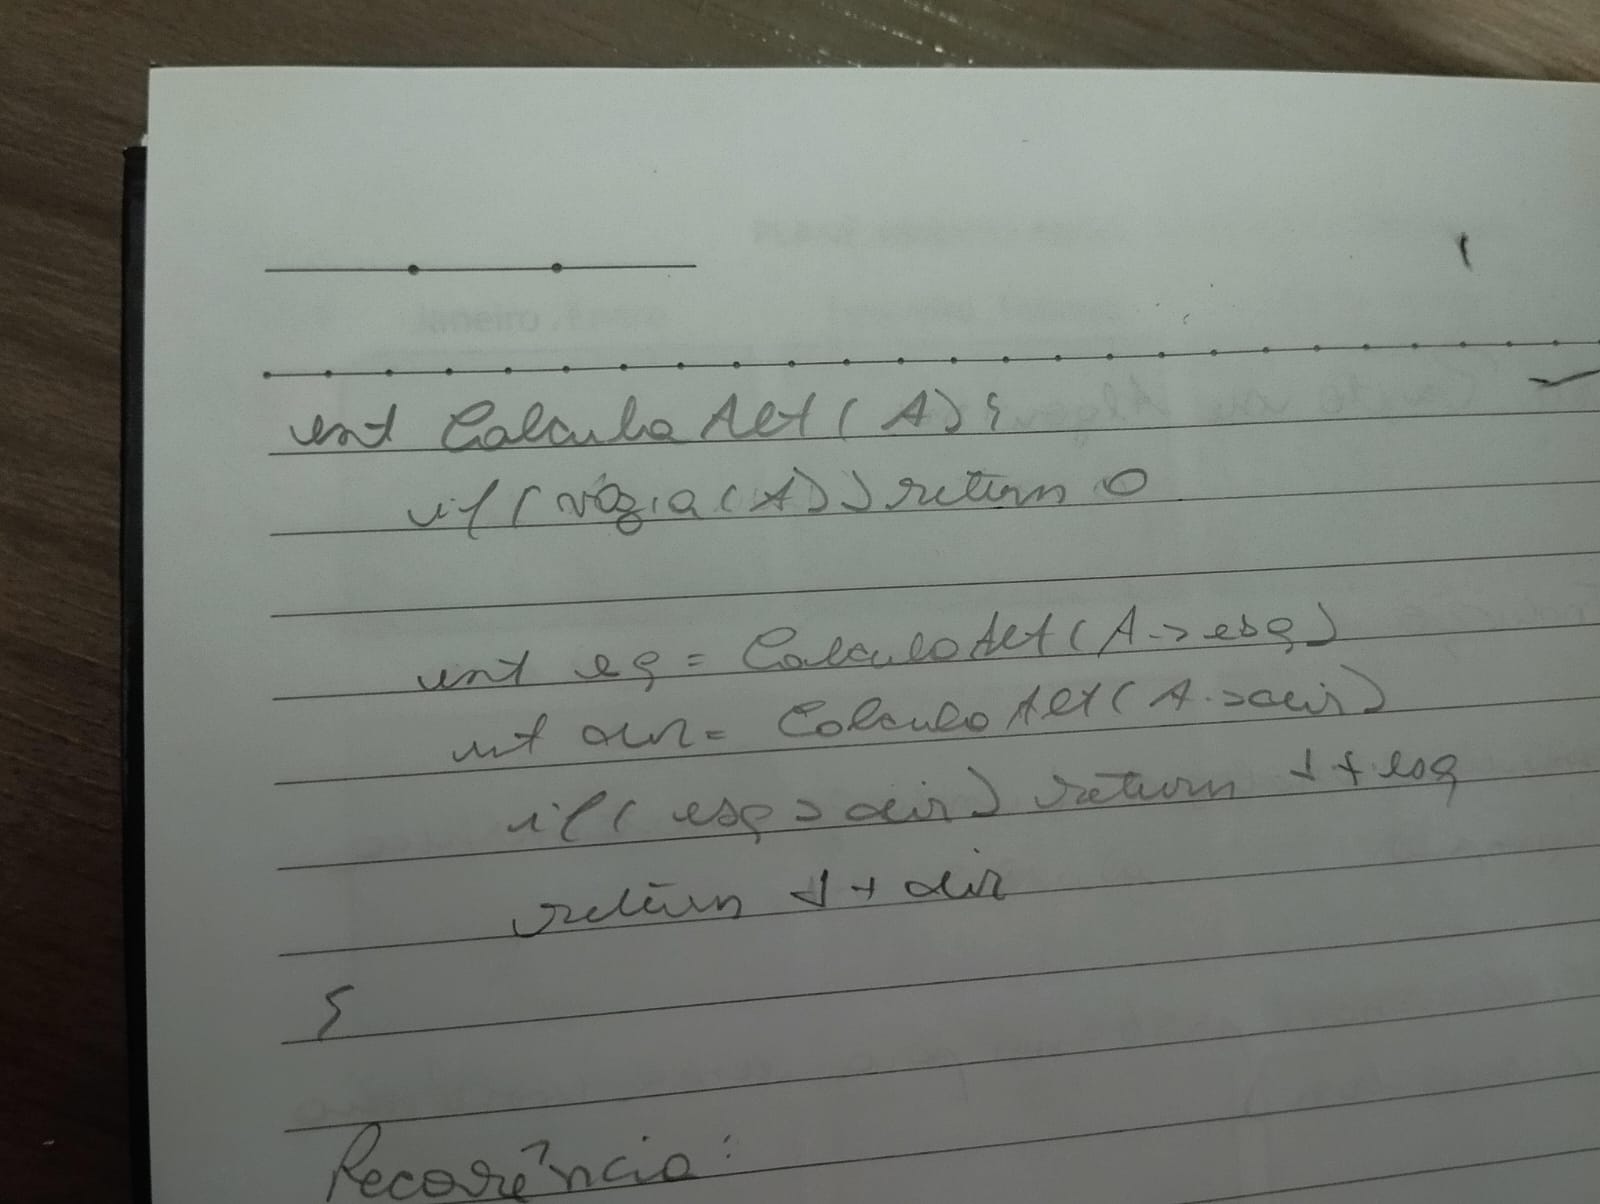 int CalculaAlt(A){
if(vazia(A)) return 0
int eq = CalculaAlt(A->esq)
int dir = CalculaAlt(A->dir)
if(esq > dir) return 1 + esq
return 1 + dir
}
Recorência: